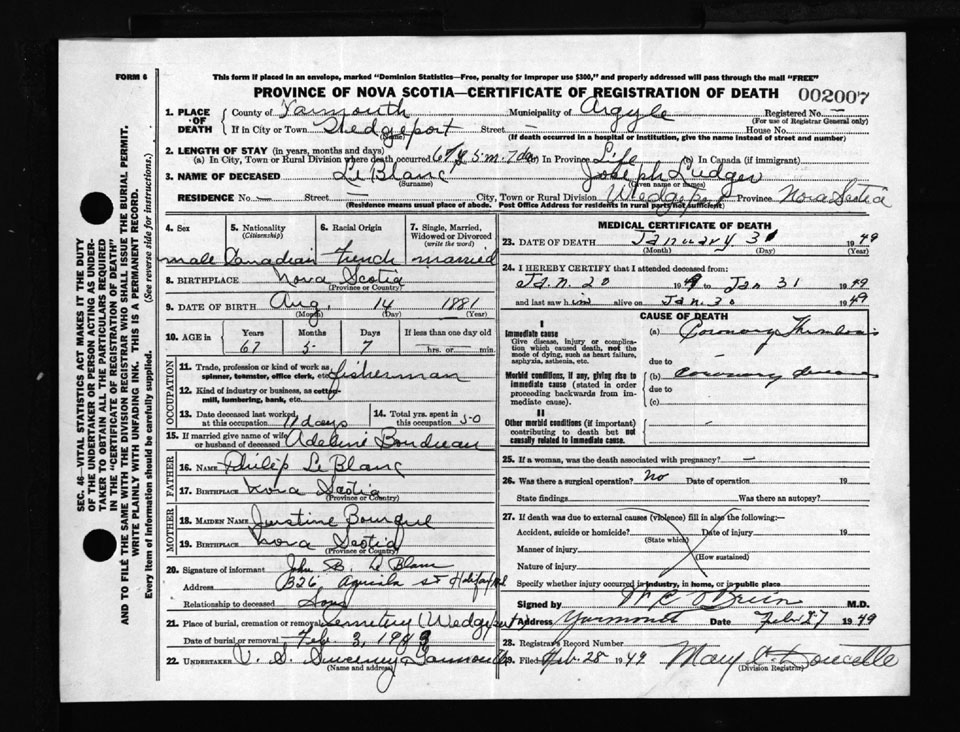 FORM 6
This form if placed in an envelope, marked "Dominion Statistics—Free, penalty for improper use $300," and properly addressed will pass through the mail "FREE"
PROVINCE OF NOVA SCOTIA—CERTIFICATE OF REGISTRATION OF DEATH
002007
SEC. 46—VITAL STATISTICS ACT MAKES IT THE DUTY
OF THE UNDERTAKER OR PERSON ACTING AS UNDER-
TAKER TO OBTAIN ALL THE PARTICULARS REQUIRED
IN THE "CERTIFICATE OF REGISTRATION OF DEATH"
AND TO FILE THE SAME WITH THE DIVISION REGISTRAR WHO SHALL ISSUE THE BURIAL PERMIT.
WRITE PLAINLY WITH UNFADING INK. THIS IS A PERMANENT RECORD.
Every item of information should be carefully supplied. (See reverse side for instructions.)
1. PLACE OF DEATH
County of Yarmouth Municipality of Argyle Registered No. —
(For use of Registrar General only)
If in City or Town Wedgeport Street — House No.
(Name) (If death occurred in a hospital or institution, give the name instead of street and number)
2. LENGTH OF STAY (in years, months and days)
(a) In City, Town or Rural Division where death occurred 67 y 5 m 7 da In Province Life (c) In Canada (if immigrant)
3. NAME OF DECEASED Le Blanc Joseph Ludger
(Surname) (Given name or names)
RESIDENCE No. — Street City, Town or Rural Division Wedgeport Province Nova Scotia
(Residence means usual place of abode. Post Office Address for residents in rural parts not sufficient)
4. Sex
male
5. Nationality
(Citizenship)
Canadian
6. Racial Origin
French
7. Single, Married,
Widowed or Divorced
(write the word)
married
8. BIRTHPLACE Nova Scotia
(Province or Country)
9. DATE OF BIRTH Aug. 14 1881
(Month) (Day) (Year)
10. AGE in Years Months Days If less than one day old
67 5 7 hrs. or min.
OCCUPATION
11. Trade, profession or kind of work as
spinner, teamster, office clerk, etc. fisherman
12. Kind of industry or business, as cotton-
mill, lumbering, bank, etc.
13. Date deceased last worked
at this occupation 11 days
14. Total yrs. spent in
this occupation 50
15. If married give name of wife
or husband of deceased
FATHER
16. NAME Philip Le Blanc
17. BIRTHPLACE Nova Scotia
(Province or Country)
MOTHER
18. MAIDEN NAME Justine Bourque
19. BIRTHPLACE Nova Scotia
(Province or Country)
20. Signature of informant John B. Le Blanc
Address St Halifax
Relationship to deceased Son
21. Place of burial, cremation or removal Cemetery (Wedgeport)
Date of burial or removal Feb. 3, 1949
22. UNDERTAKER V. S. Sweeney Yarmouth
(Name and address)
MEDICAL CERTIFICATE OF DEATH
23. DATE OF DEATH January 31 1949
(Month) (Day) (Year)
24. I HEREBY CERTIFY that I attended deceased from:
Jan. 20 1949 to Jan 31 1949
and last saw him alive on Jan. 30 1949
CAUSE OF DEATH
I
Immediate cause
Give disease, injury or complica-
tion which caused death, not the
mode of dying, such as heart failure,
asphyxia, asthenia, etc.
(a) Coronary Thrombosis
due to
Morbid conditions, if any, giving rise to
immediate cause (stated in order
proceeding backwards from im-
mediate cause).
(b) Coronary disease
due to
(c)
II
Other morbid conditions (if important)
contributing to death but not
causally related to immediate cause.
25. If a woman, was the death associated with pregnancy? —
26. Was there a surgical operation? No Date of operation 19
State findings Was there an autopsy?
27. If death was due to external causes (violence) fill in also the following:—
Accident, suicide or homicide? Date of injury 19
(State which)
Manner of injury
(How sustained)
Nature of injury
Specify whether injury occurred in industry, in home, or in public place
Signed by W C O'Brien M.D.
Address Yarmouth Date Feb 27 1949
28. Registrar's Record Number
29. Filed Feb. 28 1949 Mary Doucette
(Division Registrar)